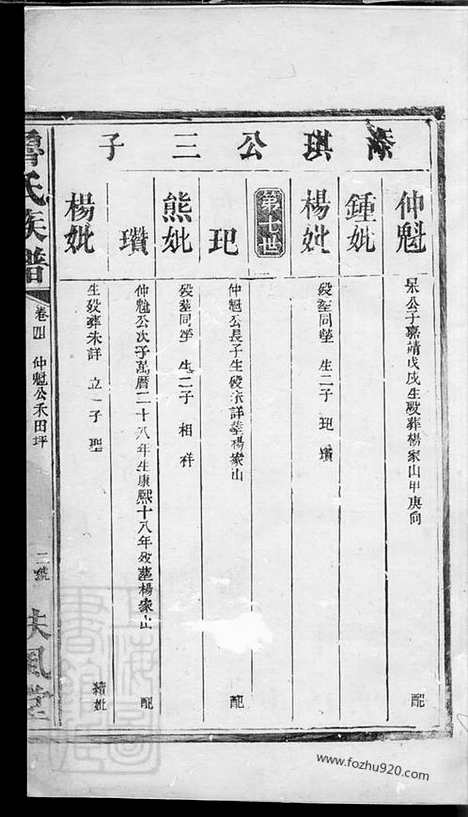 溱琪公三子
仲魁
杲公子嘉請戊戌生歿葬楊家山甲庚向 配
鍾妣
楊妣
歿塟同塋 生二子 玘 瓚
第七世
玘
仲魁公長子生歿未詳塟楊家山 配
熊妣
歿塟同塋 生二子 相 祥
瓚
仲魁公次子萬曆二十八年生康熙十八年歿塟楊家山 配
楊妣
生歿葬未詳 立一子 聖 繼妣
魯氏族譜
卷四 仲魁公禾田坪
二號
扶風堂
www.fozhu920.com